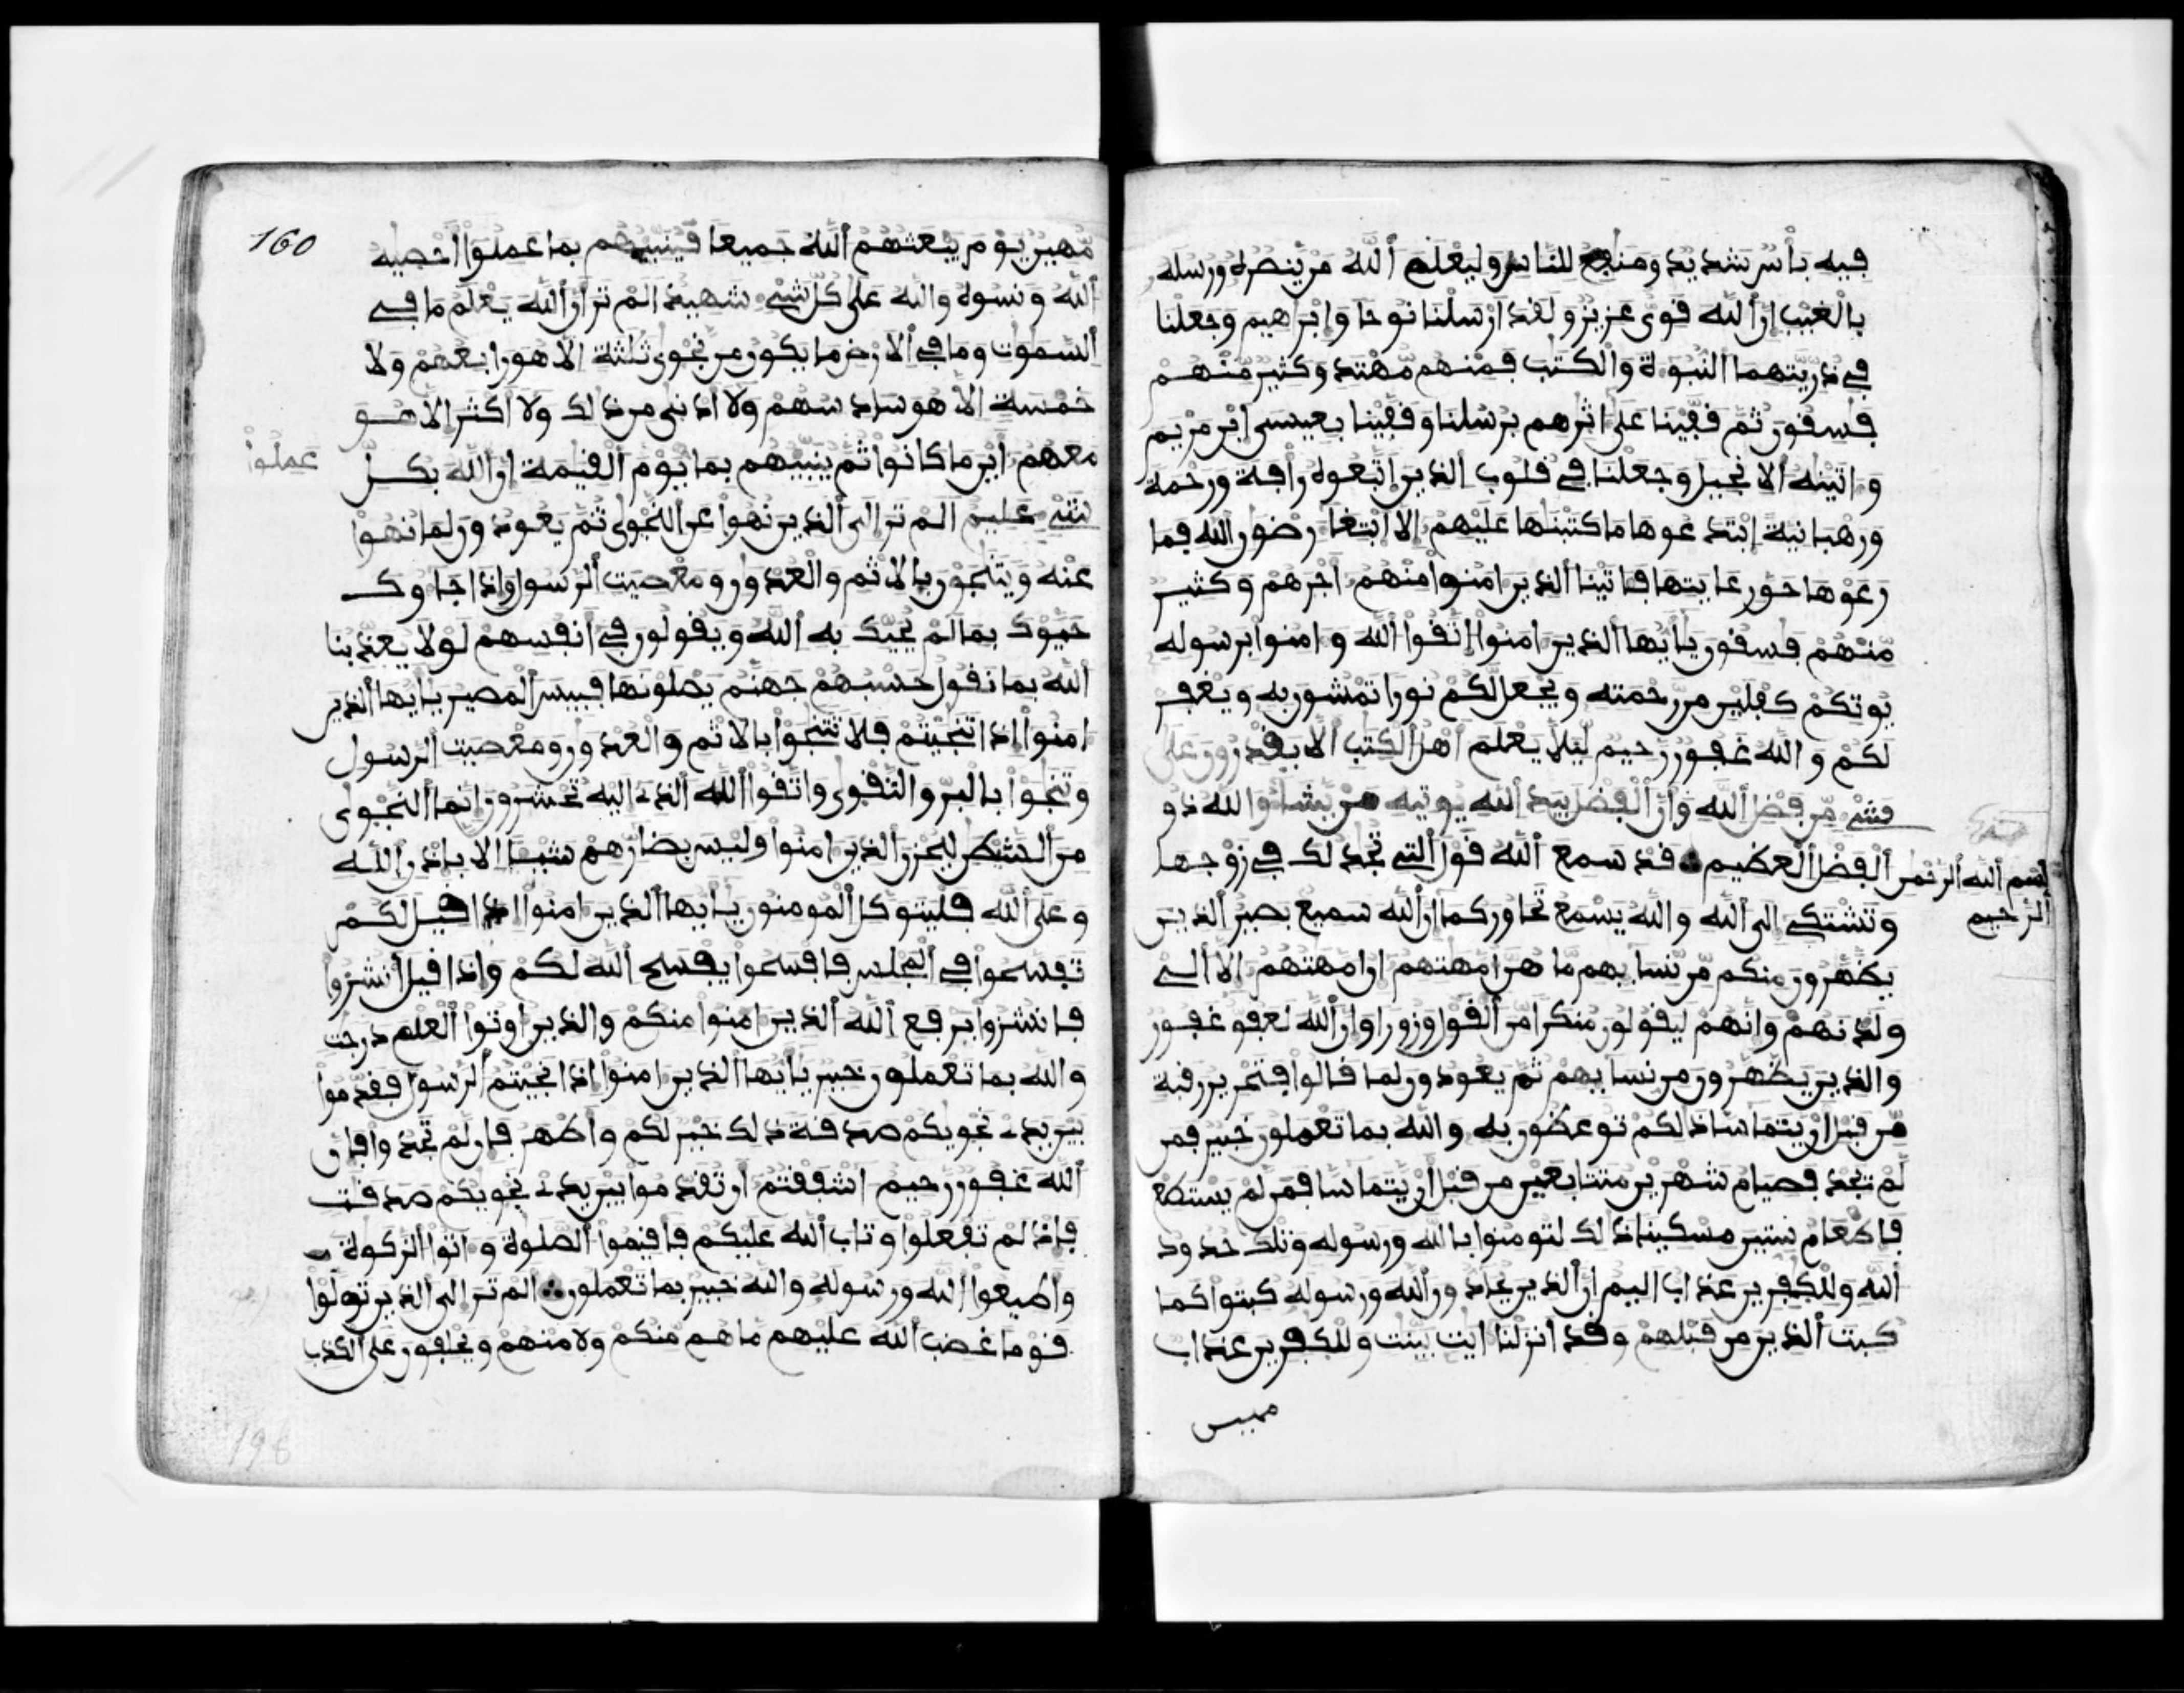 فيه بأس شديد ومنفع للناس وليعلم الله من ينصره ورسله
بالغيب ان الله قوى عزيز ولقد ارسلنا نوحا وابرهيم وجعلنا
في ذريتهما النبوة والكتب فمنهم مهتد وكثير منهم
فسقون ثم قفينا على اثرهم برسلنا وقفينا بعيسى ابن مريم
واتينه الانجيل وجعلنا في قلوب الذين اتبعوه رافة ورحمة
ورهبانية ابتدعوها ما كتبنها عليهم الا ابتغا رضون الله فما
رعوها حق رعايتها فاتينا الذين امنوا منهم اجرهم وكثير
منهم فسقون يايها الذين امنوا اتقوا الله وامنوا برسوله
يوتكم كفلين من رحمته ويجعل لكم نورا تمشون به ويغفر
لكم والله غفور رحيم ليلا يعلم اهل الكتب الا يقدرون على
شيء من فضل الله وان الفضل بيد الله يوتيه من يشا والله ذو
الفضل العظيم ∴ قد سمع الله قول التي تجدلك في زوجها
بسم الله الرحمن
الرحيم
وتشتكي الى الله والله يسمع تحاوركما ان الله سميع بصير الذين
يظهرون منكم من نسايهم ما هن امهتهم ان امهتهم الا الي
ولدنهم وانهم ليقولون منكرا من القول وزورا وان الله لعفو غفور
والذين يظهرون من نسايهم ثم يعودون لما قالوا فتحرير رقبة
من قبل ان يتماسا ذلكم توعظون به والله بما تعملون خبير فمن
لم يجد فصيام شهرين متتابعين من قبل ان يتماسا فمن لم يستطع
فاطعام ستين مسكينا ذلك لتومنوا بالله ورسوله وتلك حدود
الله وللكفرين عذاب اليم ان الذين يحادون الله ورسوله كبتوا كما
كبت الذين من قبلهم وقد انزلنا ايت بينت وللكفرين عذاب
مهين
160
مهين يوم يبعثهم الله جميعا فينبيهم بما عملوا احصيه
الله ونسوه والله على كل شيء شهيد الم تر ان الله يعلم ما في
السموت وما في الارض ما يكون من نجوى ثلثة الا هو رابعهم ولا
خمسة الا هو سادسهم ولا ادنى من ذلك ولا اكثر الا هو
معهم اين ما كانوا ثم ينبيهم بما يوم القيمة ان الله بكل
عملوا
شيء عليم الم تر الى الذين نهوا عن النجوى ثم يعودون لما نهوا
عنه ويتنجون بالاثم والعدون ومعصيت الرسول واذا جاوك
حيوك بما لم يحيك به الله ويقولون في انفسهم لولا يعذبنا
الله بما نقول حسبهم جهنم يصلونها فبيس المصير يايها الذين
امنوا اذا تنجيتم فلا تتنجوا بالاثم والعدون ومعصيت الرسول
وتنجوا بالبر والتقوى واتقوا الله الذي اليه تحشرون انما النجوى
من الشيطن ليحزن الذين امنوا وليس بضارهم شيا الا باذن الله
وعلى الله فليتوكل المومنون يايها الذين امنوا اذا قيل لكم
تفسحوا في المجلس فافسحوا يفسح الله لكم واذا قيل انشزوا
فانشزوا يرفع الله الذين امنوا منكم والذين اوتوا العلم درجت
والله بما تعملون خبير يايها الذين امنوا اذا نجيتم الرسول فقدموا
بين يدي نجويكم صدقة ذلك خير لكم واطهر فان لم تجدوا فان
الله غفور رحيم اشفقتم ان تقدموا بين يدي نجويكم صدقت
فاذ لم تفعلوا وتاب الله عليكم فاقيموا الصلوة واتوا الزكوة
واطيعوا الله ورسوله والله خبير بما تعملون ∴ الم تر الى الذين تولوا
قوما غضب الله عليهم ما هم منكم ولا منهم ويحلفون على الكذب
198